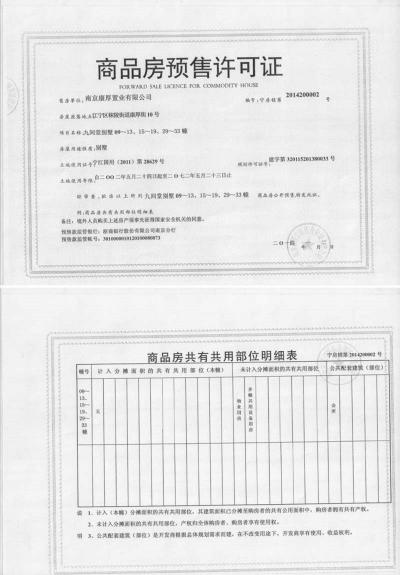 商品房预售许可证
FORWARD SALE LICENCE FOR COMMODITY HOUSE
售房单位:南京康厚置业有限公司 编号:宁房销第 2014200002 号
房屋座落地点:江宁区秣陵街道康厚街10号
项目名称:九间堂别墅09～13、15～19、29～33幢
房屋用途性质:别墅
土地使用证号:宁江国用(2011)第28629号 规划许可证号:建字第320115201380033号
土地使用年限:自二〇〇二年五月二十四日起至二〇七二年五月二十三日止
经审查,批准以上所列 九间堂别墅09～13、15～19、29～33幢 商品房公开预售,特发此证。
附:商品房共有共用部位明细表
备注:境外人员购买上述房产须事先征得国家安全机关的同意。
预售款监管银行:浙商银行股份有限公司南京分行
预售款监管账号:3010000010120100080073
二〇一四年 月 日
商品房共有共用部位明细表
宁房销第2014200002号
幢号 计入分摊面积的共有共用部位(本幢) 未计入分摊面积的共有共用部位 公共配套建筑(部位)
09～13、15～19、29～33幢 无 物业用房 多幢共用设备用房 会所
说 1、计入(本幢)分摊面积的共有共用部位,其建筑面积已分摊至购房者的共有公用面积中,购房者拥有共有产权。
2、未计入分摊面积的共有共用部位,产权归全体购房者,购房者享有使用权。
明 3、公共配套建筑(部位)是开发商根据总体规划需求而建,在不改变用途下,开发商享有使用、收益权利。